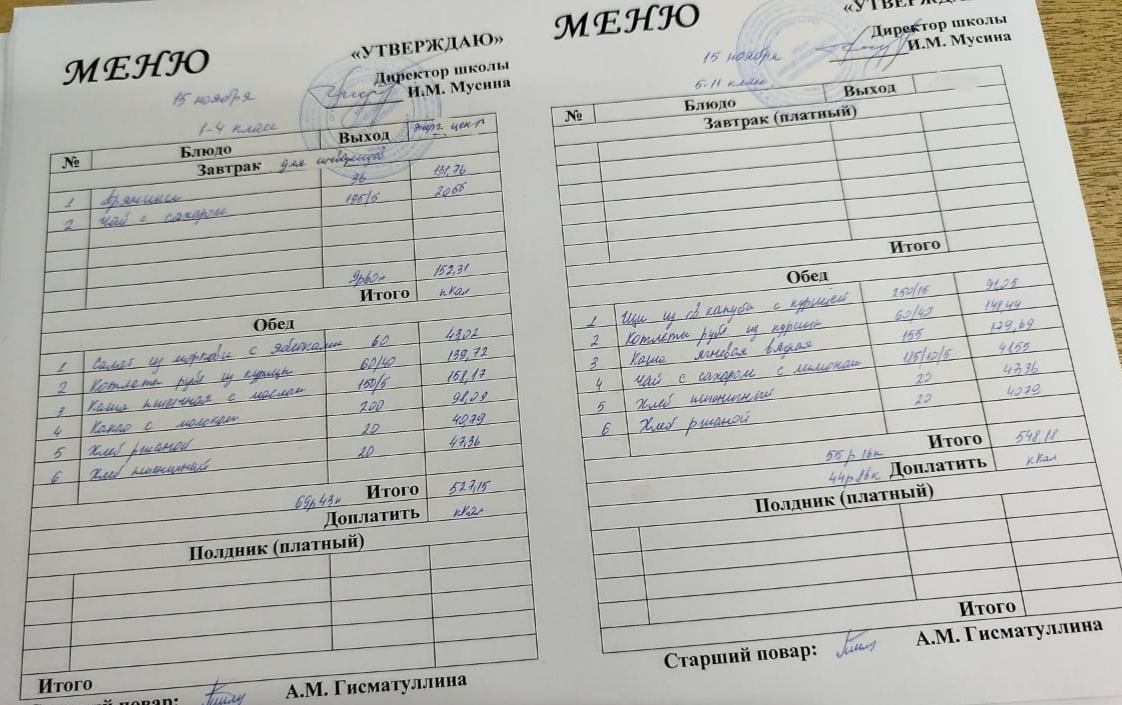 МЕНЮ
«УТВЕРЖДАЮ»
Директор школы
И.М. Мусина
15 ноября
1-4 класс
№ Блюдо Выход энерг. цент
Завтрак для инвалидов
1 Пряники 36 131,76
2 Чай с сахаром 195/5 20,55
9р60к 152,31
Итого кКал
Обед
1 Салат из моркови с яблоками 60 43,02
2 Котлета руб из курицы 60/40 139,72
3 Каша пшенная с маслом 150/5 158,17
4 Какао с молоком 200 98,09
5 Хлеб ржаной 20 40,79
6 Хлеб пшеничный 20 47,36
69р43к Итого 527,15
Доплатить кКал
Полдник (платный)
Итого
повар: А.М. Гисматуллина
МЕНЮ
Директор школы
И.М. Мусина
15 ноября
5-11 класс
№ Блюдо Выход
Завтрак (платный)
Итого
Обед
1 Щи из св капусты с курицей 250/15 91,25
2 Котлета руб из курицы 60/40
3 Каша ячневая вязкая 155 129,69
4 Чай с сахаром с лимоном 185/10/5 41,55
5 Хлеб пшеничный 20 47,36
6 Хлеб ржаной 20 40,79
55р 16к Итого
44р 86к Доплатить кКал
Полдник (платный)
Итого
Старший повар: А.М. Гисматуллина